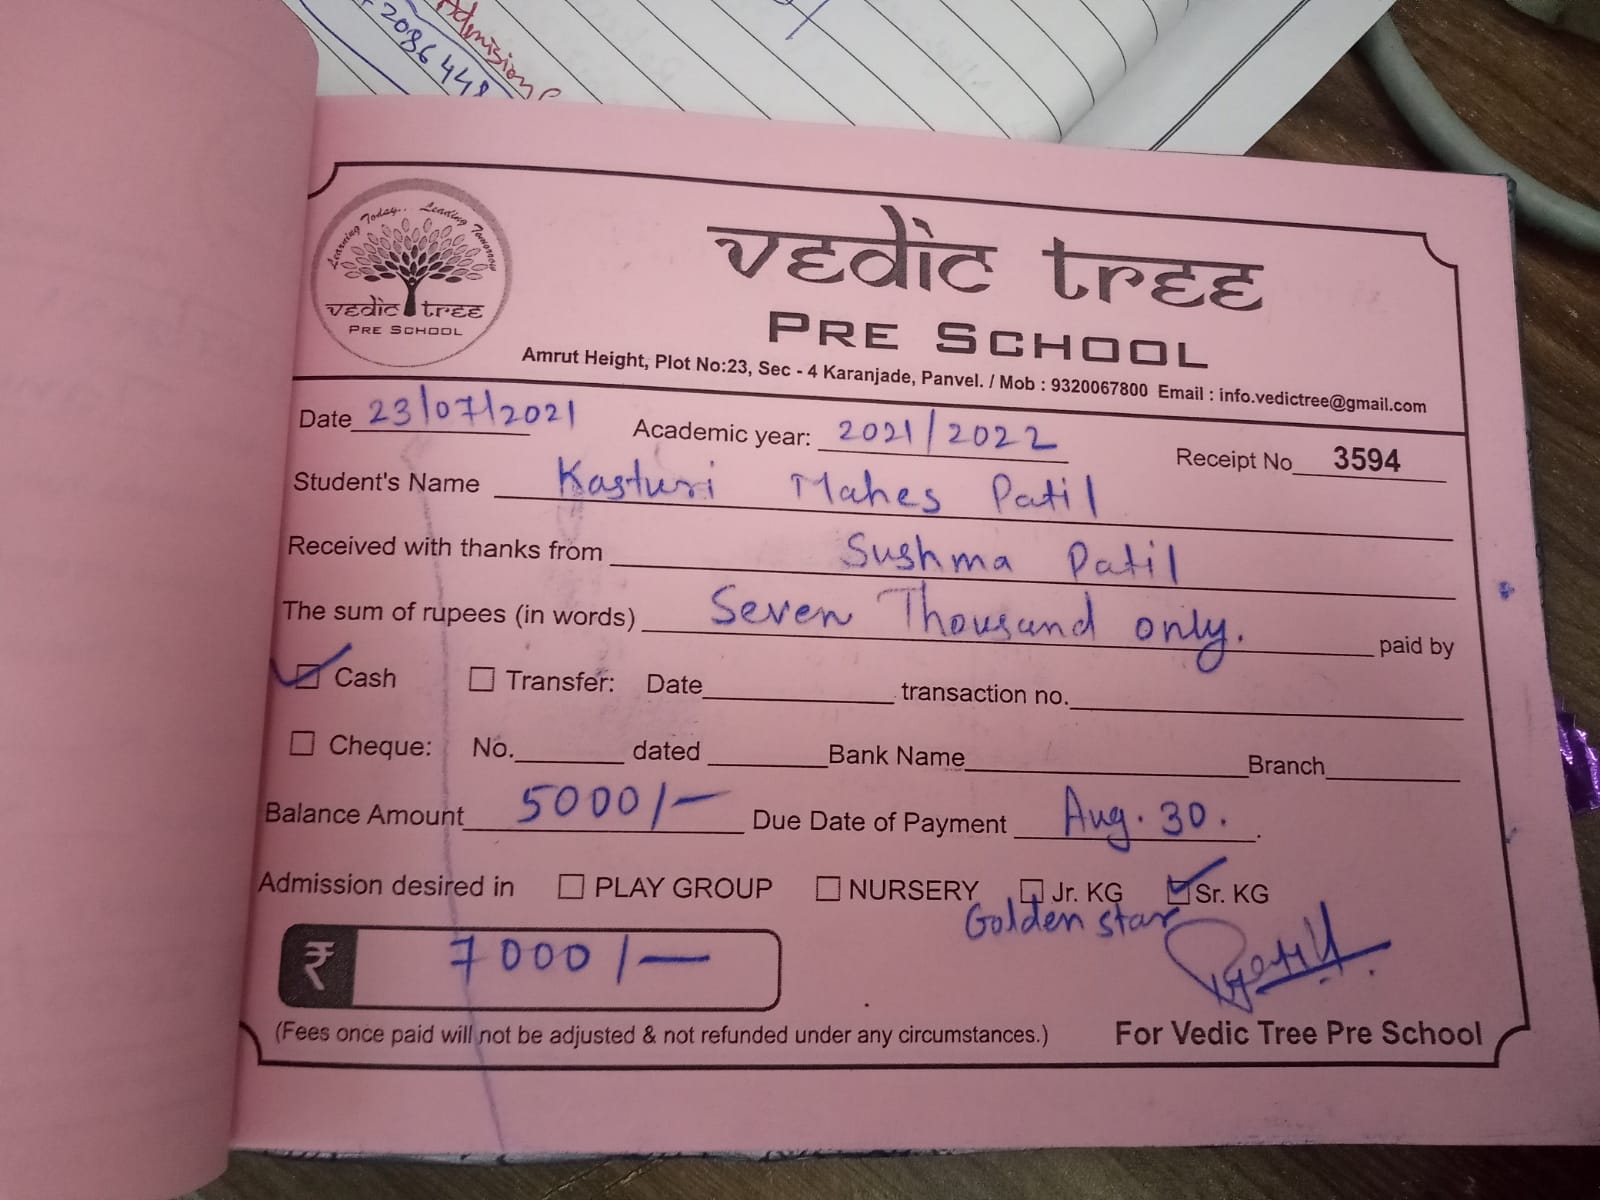 Admission
2086448
Learning Today... Leading Tomorrow
vedic tree
PRE SCHOOL
vedic tree
PRE SCHOOL
Amrut Height, Plot No:23, Sec - 4 Karanjade, Panvel. / Mob : 9320067800 Email : info.vedictree@gmail.com
Date 23/07/2021 Academic year: 2021/2022 Receipt No 3594
Student's Name Kasturi Mahes Patil
Received with thanks from Sushma Patil
The sum of rupees (in words) Seven Thousand only. paid by
Cash Transfer: Date transaction no.
Cheque: No. dated Bank Name Branch
Balance Amount 5000/- Due Date of Payment Aug. 30.
Admission desired in PLAY GROUP NURSERY Jr. KG Sr. KG
Golden star
₹ 7000/-
(Fees once paid will not be adjusted & not refunded under any circumstances.) For Vedic Tree Pre School